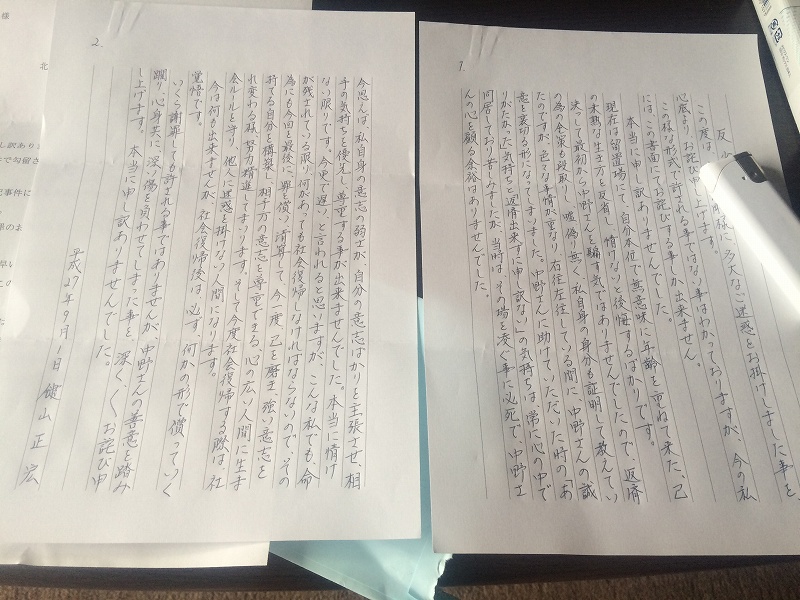 1.
反
この度は
様に多大なご迷惑をお掛けしました事を、
心底よりお詫び申し上げます。
この様な形式で許される事ではない事はわかっておりますが、今の私
には、この書面にてお詫びする事しか出来ません。
本当に申し訳ありませんでした。
現在は留置場にて、自分本位で無意味に年齢を重ねて来た、己
の未熟な生き方を反省し、情けないと後悔するばかりです。
決して最初から中野さんを騙す気ではありませんでしたので、返済
の為の企業も授取し、嘘偽り無く、私自身の身分も証明して教えてい
たのですが、色々な事情が重なり、右往左往している間に、中野さんの誠
意を裏切る形になってしまいました。中野さんに助けていただいた時の「あ
りがたかった」気持ちと「返済出来ずに申し訳ない」の気持ちは、常に心の中で
同居しており、苦しみましたが、当時は、その場を凌ぐ事に必死で、中野さ
んの心を顧る余裕はありませんでした。
2.
今思えば、私自身の意志の弱さが、自分の意志ばかりを主張させ、相
手の気持ちを優先し、尊重する事が出来ませんでした。本当に情け
ない限りです。今更で遅い、と言われると思いますが、こんな私でも、命
が残されている限り、何があっても社会復帰しなければならないので、その
為にも今回を最後に、罪を償い、清算して、今度、己を磨き、強い意志を
持てる自分を構築し、相手方の意志を尊重できる、心の広い人間に生ま
れ変わる様、努力精進してまいります。そして今度社会復帰する際は、社
会ルールを守り、他人に迷惑を掛けない人間になります。
今は何も出来ませんが、社会復帰後は、必ず、何かの形で償っていく
覚悟です。
いくら謝罪しても許される事ではありませんが、中野さんの善意を踏み
躙り、心身共に、深い傷を負わせてしまった事を、深く、深くお詫び申
し上げます。本当に申し訳ありませんでした。
平成27年9月1日 健山正宏
様
北
し訳あり
で勾留さ
事件に
早い